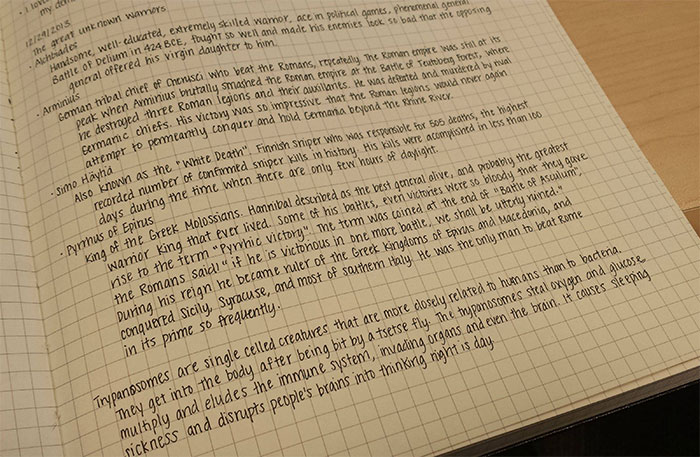 · I love
my dom
12/29/2013
The great unknown warriors
· Alcibiades
Handsome, well-educated, extremely skilled warrior, ace in political games, phenomenal general
Battle of Delium in 424 BCE, fought so well and made his enemies look so bad that the opposing
general offered his virgin daughter to him.
· Arminius
German tribal chief of Cherusci who beat the Romans, repeatedly. The Roman empire was still at its
peak when Arminius brutally smashed the Roman empire at the Battle of Teutoberg forest, where
he destroyed three Roman legions and their auxiliaries. He was defeated and murdered by rival
Germanic chiefs. His victory was so impressive that the Roman legions would never again
attempt to permeantly conquer and hold Germania beyond the Rhine River.
· Simo Häyhä
Also known as the "White Death". Finnish sniper who was responsible for 505 deaths, the highest
recorded number of confirmed sniper kills in history. His kills were acomplished in less than 100
days during the time when there are only few hours of daylight.
· Pyrrhus of Epirus
King of the Greek Molossians. Hannibal described as the best general alive, and probably the greatest
warrior king that ever lived. Some of his battles, even victories were so bloody that they gave
rise to the term "Pyrrhic victory". The term was coined at the end of "Battle of Asculum",
the Romans said "if he is victorious in one more battle, we shall be utterly ruined."
During his reign he became ruler of the Greek Kingdoms of Epirus and Macedonia, and
conquered Sicily, Syracuse, and most of southern Italy. He was the only man to beat Rome
in its prime so frequently.
Trypanosomes are single celled creatures that are more closely related to humans than to bacteria.
They get into the body after being bit by a tsetse fly. The trypanosomes steal oxygen and glucose
multiply and eludes the immune system, invading organs and even the brain. It causes sleeping
sickness and disrupts people's brains into thinking night is day.